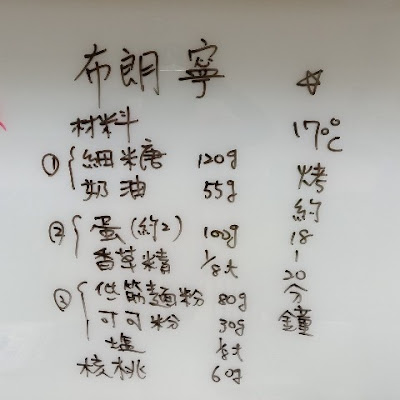 布朗寧
材料
① 細糖 120g
奶油 55g
② 蛋(約2) 100g
香草精 1/8t
③ 低筋麵粉 80g
可可粉 30g
塩 1/8t
核桃 60g
☆
170℃
烤
約
18
|
20
分
鐘